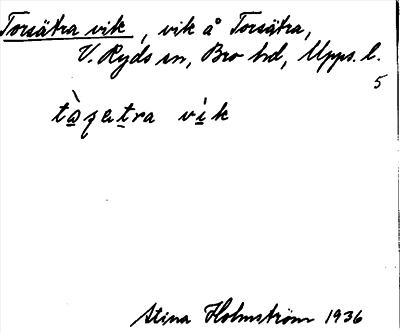 Torsätra vik, vik å Torsätra,
V. Ryds sn, Bro hd, Upps. l.
5
tàsetra vík
Stina Holmström 1936